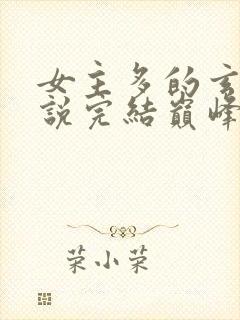 女主多的玄
說完結巔峰
荣小荣